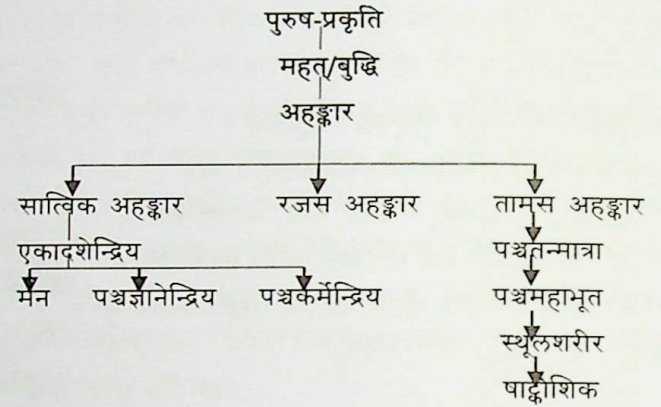 पुरुष-प्रकृति
महत्/बुद्धि
अहङ्कार
सात्विक अहङ्कार रजस अहङ्कार तामस अहङ्कार
एकादशेन्द्रिय पञ्चतन्मात्रा
मन पञ्चज्ञानेन्द्रिय पञ्चकर्मेन्द्रिय पञ्चमहाभूत
स्थूलशरीर
षाट्कोशिक